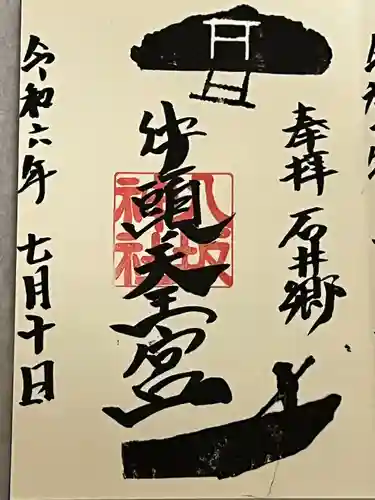 奉拝 石井郷
牛頭天王宮
八坂神社
令和六年 七月十日